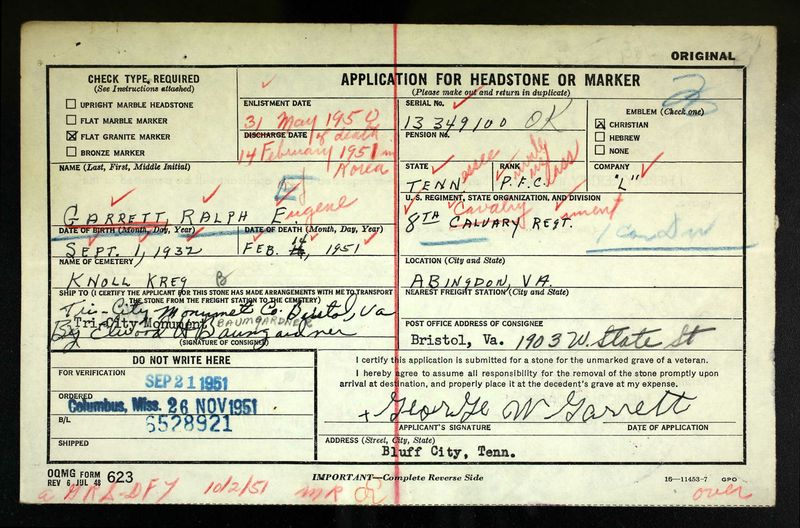 ORIGINAL
CHECK TYPE REQUIRED
(See Instructions attached)
UPRIGHT MARBLE HEADSTONE
FLAT MARBLE MARKER
FLAT GRANITE MARKER
BRONZE MARKER
APPLICATION FOR HEADSTONE OR MARKER
(Please make out and return in duplicate)
ENLISTMENT DATE
31 May 1950
DISCHARGE DATE of death
14 February 1951 in
Korea
SERIAL No.
13 349100 OK
PENSION No.
EMBLEM (Check one)
CHRISTIAN
HEBREW
NONE
NAME (Last, First, Middle Initial)
GARRETT, RALPH E. Eugene
STATE
TENN essee
RANK
P.F.C.
COMPANY
"L"
U. S. REGIMENT, STATE ORGANIZATION, AND DIVISION
Cavalry
8TH CALVARY REGT. iment
1 Cav Div
DATE OF BIRTH (Month, Day, Year)
SEPT. 1, 1932
DATE OF DEATH (Month, Day, Year)
FEB. 14, 1951
NAME OF CEMETERY
KNOLL KREG
LOCATION (City and State)
ABINGDON, VA.
SHIP TO (I CERTIFY THE APPLICANT FOR THIS STONE HAS MADE ARRANGEMENTS WITH ME TO TRANSPORT
THE STONE FROM THE FREIGHT STATION TO THE CEMETERY)
Tri-City Monument Co. Bristol, Va
Tri-City Monument BAUMGARDNER
By Elwood Baumgardner
(SIGNATURE OF CONSIGNEE)
NEAREST FREIGHT STATION (City and State)
POST OFFICE ADDRESS OF CONSIGNEE
Bristol, Va. 1903 W. State St
DO NOT WRITE HERE
FOR VERIFICATION
SEP 21 1951
ORDERED
Columbus, Miss. 26 NOV 1951
B/L
6528921
SHIPPED
I certify this application is submitted for a stone for the unmarked grave of a veteran.
I hereby agree to assume all responsibility for the removal of the stone promptly upon
arrival at destination, and properly place it at the decedent's grave at my expense.
George W Garrett
APPLICANT'S SIGNATURE
DATE OF APPLICATION
ADDRESS (Street, City, State)
Bluff City, Tenn.
OQMG FORM
REV 6 JUL 48 623
IMPORTANT—Complete Reverse Side
16—11453-7 GPO
10/2/51
over